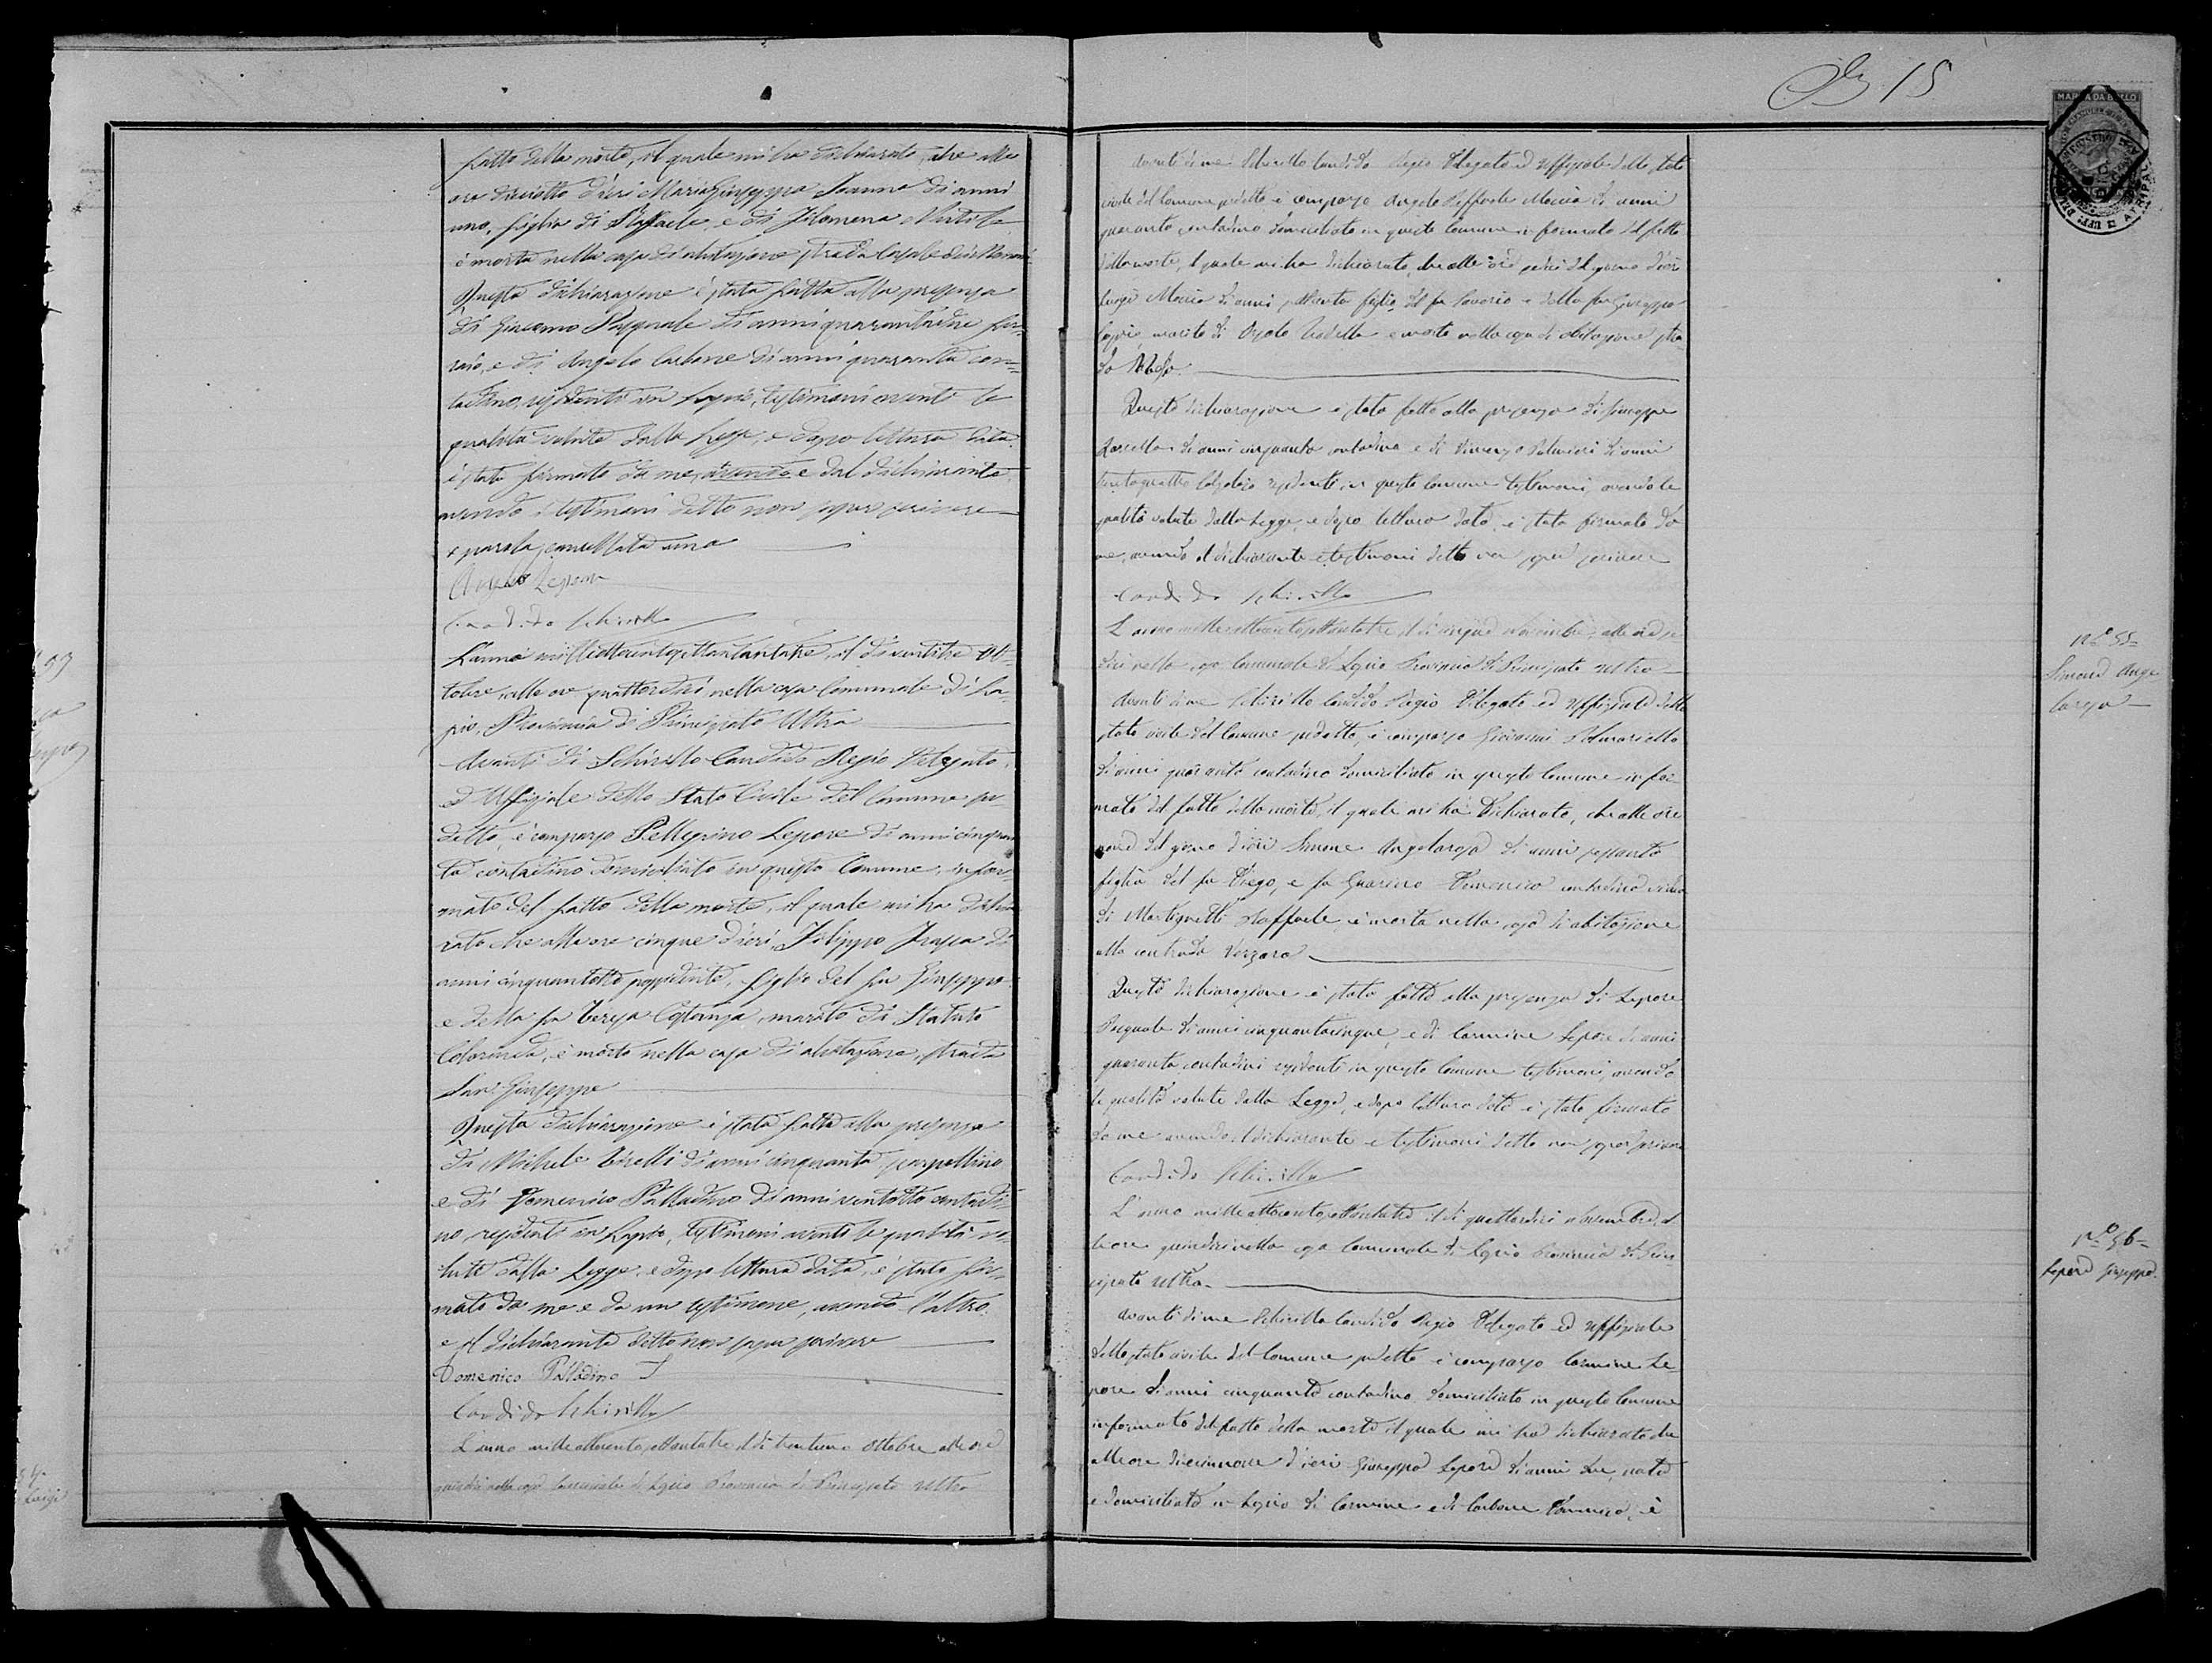 fatto della morte, il quale mi ha dichiarato, che alle
ore diciotto d'ieri Maria Giuseppa Ioanna di anni
uno, figlia di Raffaele, e di Filomena
è morta nella casa di abitazione strada Casale
Questa dichiarazione è stata fatta alla presenza
di Giacomo Pasquale di anni quarantadue
e di Angelo Carbone di anni quaranta con=
tadino, residenti in Lapio, testimoni aventi le
qualità volute dalla Legge, e dopo lettura data
è stato firmato da me, avendo e dal dichiarante
avendo i testimoni detto non saper scrivere
parola cancellata una
Angelo Lepore
Candido Schirillo
L'anno milleottocentottantatre, il dì ventitre Ot=
tobre, alle ore quattordici nella casa Comunale di La=
pio, Provincia di Principato Ultra
Avanti di Schirillo Candido Regio Delegato,
ed Uffiziale dello Stato Civile del Comune su
detto, è comparso Pellegrino Lepore di anni cinquan
ta contadino domiciliato in questo Comune, infor=
mato del fatto della morte, il quale mi ha dichia
rato che alle ore cinque d'ieri, Filippo Trappa di
anni cinquantotto possidente, figlio del fu Giuseppe
e della fu Teresa Costanza, marito di Statuto
Colorinda, è morto nella casa di abitazione, strada
San Giuseppe
Questa dichiarazione è stata fatta alla presenza
di Michele Cirelli di anni cinquanta scarpellino
e di Domenico Palladino di anni ventotto contadi
no residenti in Lapio, testimoni aventi le qualità vo=
lute dalla Legge, e dopo lettura data, è stato fir=
mato da me e da un testimone, avendo l'altro
e il dichiarante detto non saper scrivere
Domenico Palladino T
Candido Schirillo
L'anno milleottocentottantatre il dì trentuno Ottobre alle ore
quindici nella casa Comunale di Lapio Provincia di Principato Ultra
15
MARCA DA BOLLO
avanti di me Schirillo Candido Regio Delegato ed Uffiziale dello stato
civile del Comune sudetto è comparso Angelo Raffaele Maccia di anni
quaranta contadino domiciliato in questo Comune informato del fatto
della morte, il quale mi ha dichiarato, che alle ore sedici del giorno d'ieri
Luigi Maccia di anni settanta figlio del fu Saverio e della fu Giuseppa
marito di e morto nella casa di abitazione stra
da
Questa dichiarazione è stata fatta alla presenza di Giuseppe
di anni cinquanta contadino e di Vincenzo Palmieri di anni
trentaquattro Calzolaio residenti in questo Comune testimoni, avendo le
qualità volute dalla Legge, e dopo lettura data è stato firmato da
me, avendo il dichiarante e testimoni detto non saper scrivere
Candido Schirillo
L'anno milleottocentottantatre, il dì cinque Novembre, alle ore se
dici nella casa Comunale di Lapio Provincia di Principato Ultra
Avanti di me Schirillo Candido Regio Delegato ed Uffiziale dello
stato civile del Comune sudetto, è comparso Giovanni Palmariello
di anni quaranta contadino domiciliato in questo Comune infor
mato del fatto della morte, il quale mi ha dichiarato, che alle ore
nove del giorno d'ieri Simone Angelarosa di anni sessanta
figlia del fu Diego, e fu Guarino Domenica contadina vedova
di Martignetti Raffaele è morta nella casa di abitazione
alla contrada Verzara
Questa dichiarazione è stata fatta alla presenza di Lepore
Pasquale di anni cinquantacinque, e di Carmine Lepore di anni
quaranta contadini residenti in questo Comune testimoni, avendo
le qualità volute dalla Legge, e dopo lettura data è stato firmato
da me avendo il dichiarante e testimoni detto non saper scrivere
Candido Schirillo
L'anno milleottocentottantatre il dì quattordici Novembre, al
le ore quindici nella casa Comunale di Lapio Provincia di Prin
cipato Ultra
Avanti di me Schirillo Candido Regio Delegato ed Uffiziale
dello stato civile del Comune sudetto è comparso Carmine Le
pore di anni cinquanta contadino domiciliato in questo Comune
informato del fatto della morte il quale mi ha dichiarato che
alle ore diecinnove d'ieri Giuseppa Lepore di anni due, nata
e domiciliata in Lapio di Carmine e di Carbone Domenica, è
No 55=
Simone Ange
larosa
No 56=
Lepore Giuseppa